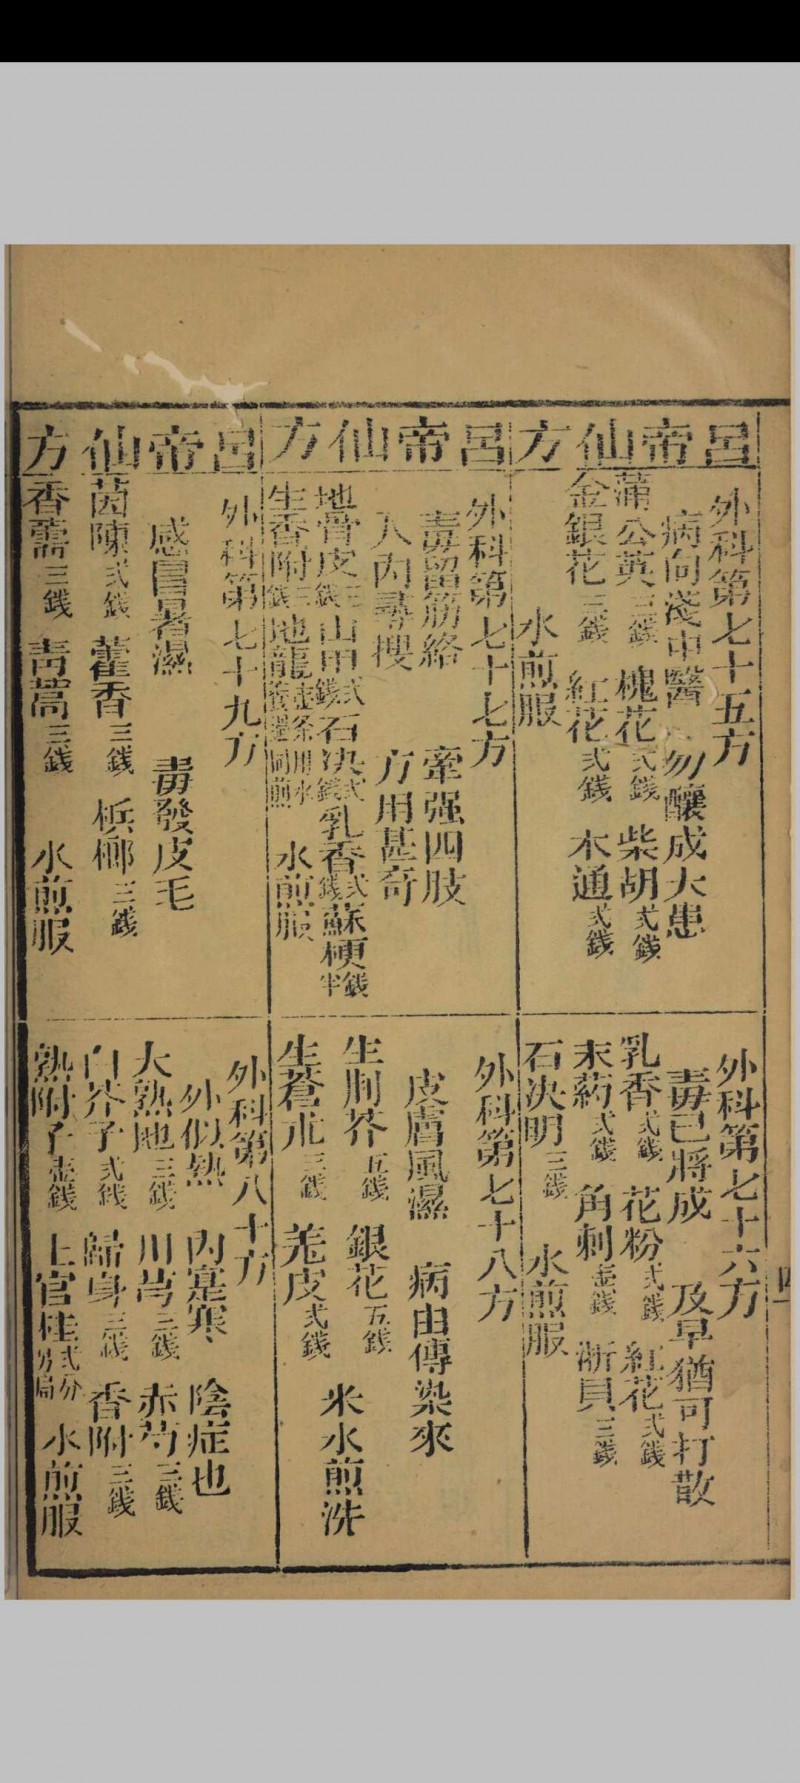 呂帝仙方
外科第七十五方
病向淺中醫 勿釀成大患
蒲公英三錢 槐花弍錢 柴胡弍錢
金銀花三錢 紅花弍錢 木通弍錢
水煎服
外科第七十六方
毒已將成 及早猶可打散
乳香弍錢 花粉弍錢 紅花弍錢
末葯弍錢 角刺壹錢 淅貝三錢
石決明三錢 水煎服
呂帝仙方
外科第七十七方
毒留筋絡 牽强四肢
入內尋搜 方用甚奇
地骨皮三錢 山甲弍錢 石決弍錢 乳香弍錢 蘇梗錢半
生香附三錢 地龍壹条用水養還同煎 水煎服
外科第七十八方
皮膚風濕 病由傳染來
生荆芥五錢 銀花五錢 米水煎洗
生蒼朮三錢 羌皮弍錢
呂帝仙方
外科第七十九方
感冒暑濕 毒發皮毛
茵陳弍錢 藿香三錢 梹榔三錢
香薷三錢 靑蒿三錢 水煎服
外科第八十方
外似熱 內寔寒 陰症也
大熟地三錢 川芎三錢 赤芍三錢
白芥子弍錢 歸身三錢 香附三錢
熟附子壹錢 上官桂弍分另焗 水煎服